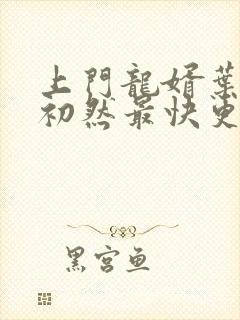 上門龍婿葉
初然最快更
黑宮魚